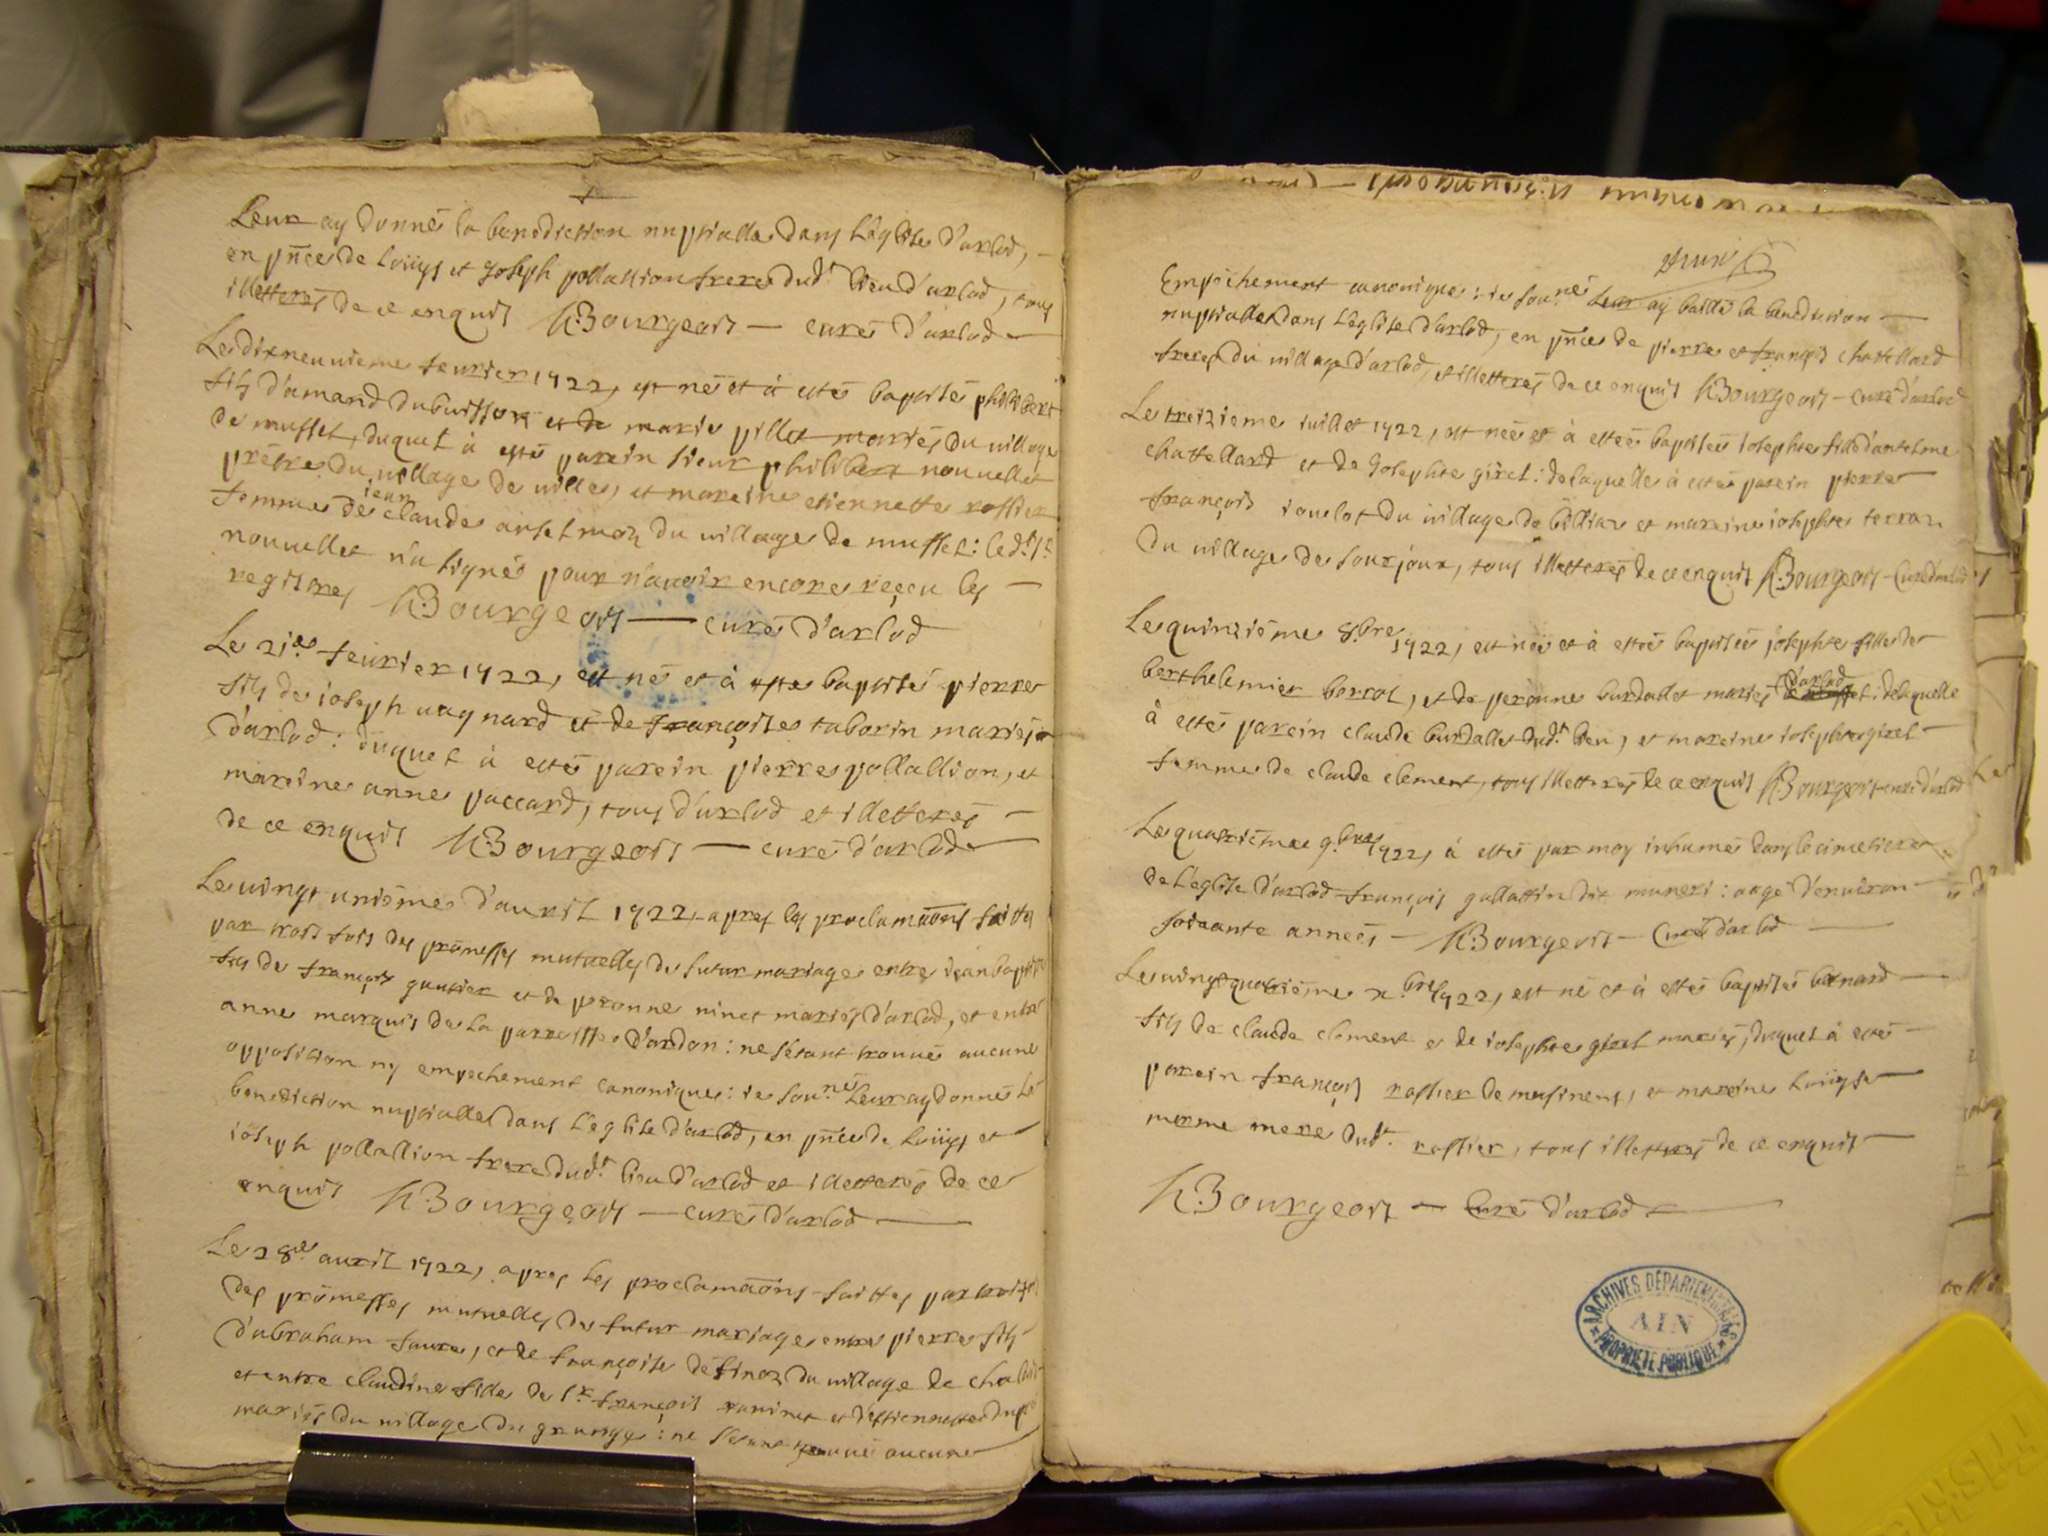 Leur ay donné la benediction nuptialle dans L'eglise d'arlod,
en pñce de Loüys et Joseph pollallion frere dud.t lieu d'arlod, tous
illetterés de ce enquis h: Bourgeois — curé d'arlod
Le dixneuuieme feurier 1722, est né et à esté baptisé philibert
fils d'amand dubuisson et de marie pillet mariés du uillage
de mussel, duquel à esté parein sieur philibert nouuellet
prêtre du uillage de uilles, et mareine etiennette rossier
femme de jean claude anselmoz du uillage de mussel: led.t s.r
nouuellet n'a signé pour n'auoir encore reçeu les
registres h: Bourgeois — curé d'arlod
Le 21.e feurier 1722, est né et à esté baptisé pierre
fils de joseph uagnard et de françoise taborin mariés
d'arlod: duquel à esté parein pierre pollallion, et
mareine anne paccard, tous d'arlod et illetterés
de ce enquis h: Bourgeois — curé d'arlod
Le uingt uniéme d'auril 1722, apres les proclamaõns faittes
par trois fois des prömesses mutuelles de futur mariage entre jean baptiste
fils de françois gautier et de peronne ninet mariés d'arlod, et entre
anne marquis de La parroisse d'ardon: ne s'étant trouué aucune
opposition ny empechement canonique: je sou.né Leur ay donné La
benediction nuptialle dans L'eglise d'arlod, en pñce de Loüys et
joseph pollallion frere dud.t lieu d'arlod et illetterés de ce
enquis h: Bourgeois — curé d'arlod
Le 28.e auril 1722, apres les proclamaõns faittes par trois fois
des prömesses mutuelles de futur mariage entre pierre fils
d'abraham faure, et de françoise définoz du uillage de
et entre claudine fille de s.r françois raninet et d'estiennette
mariés du uillage du grange: ne s'étant trouué aucune
Empêchement canonique: je sou.né Leur ay baillé la benediction
nuptialle dans L'eglise d'arlod, en pñce de pierre et françois chatellard
freres du uillage d'arlod, et illetterés de ce enquis h: Bourgeois — curé d'arlod
Le treizieme juillet 1722, est neé et à esteé baptiseé josephte fille d'antelme
chattellard et de Josephte girel: delaquelle à esté parein pierre
françois jouelot du uillage de billiaz et mareine josephte terraz
du uillage de sourjoux, tous illetterés de ce enquis h: Bourgeois — Curé d'arlod
Le quinziéme 8.bre 1722, est neé et à esteé baptiseé josephte fille de
berthelemier borrat, et de peronne burdallet mariés d'arlod: delaquelle
à esté parein claude burdallet dud.t lieu, et mareine josephte girel
femme de claude clement, tous illetterés de ce enquis h: Bourgeois curé d'arlod
Le quatriéme 9.bre 1722, à esté par moy inhumé dans le cimetiere
de L'eglise d'arlod françois gallattin dit muneri: aagé d'enuiron
soixante anneés — h: Bourgeois — Curé d'arlod
Le uingt quatriéme x.bre 1722, est né et à esté baptisé bernard
fils de claude clement et de josephte girel mariés, duquel à esté
parein françois rossier de musinens, et mareine Loüyse
merme mere dud.t rossier, tous illetterés de ce enquis
h: Bourgeois — Curé d'arlod
ARCHIVES DÉPARTEMENTALES
AIN
PROPRIÉTÉ PUBLIQUE